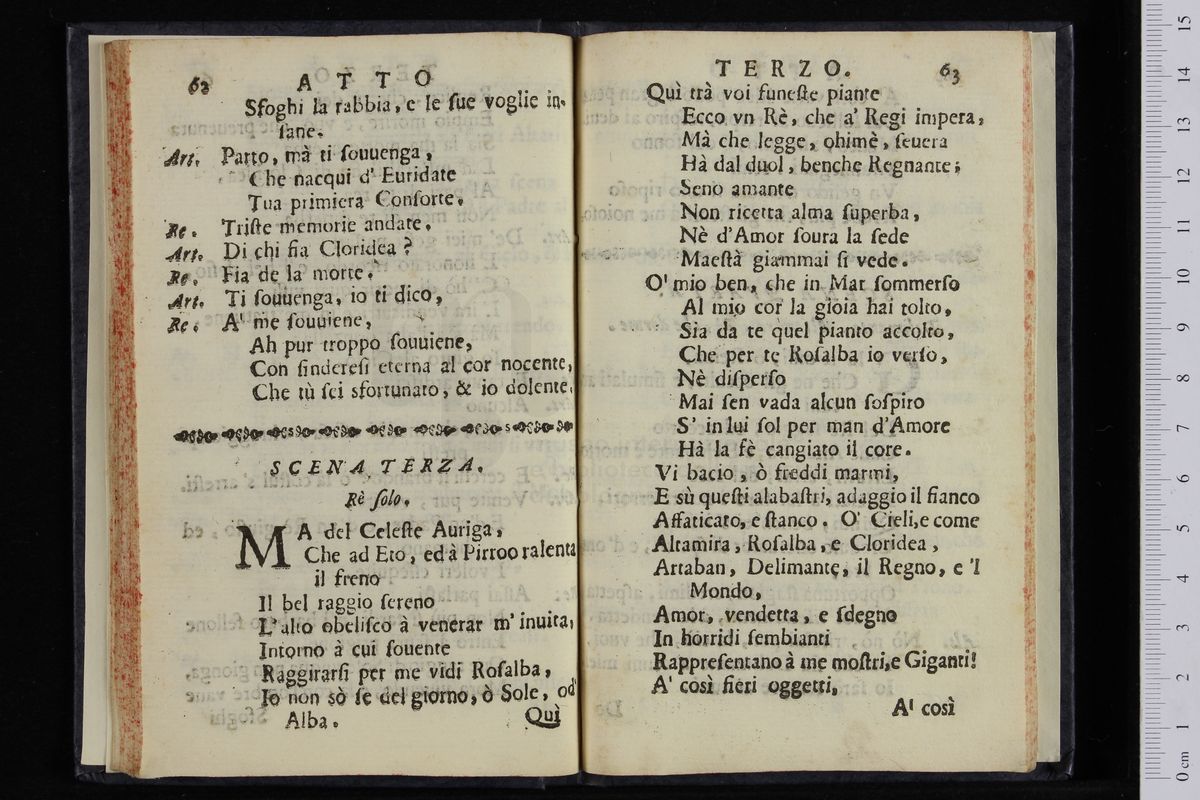 62
ATTO
Sfoghi la rabbia, e le ſue voglie in-
ſane.
Art. Parto, mà ti ſouuenga,
Che nacqui d' Euridate
Tua primiera Conſorte.
Re. Triſte memorie andate.
Art. Di chi fia Cloridea?
Re. Fia de la morte.
Art. Ti ſouuenga, io ti dico,
Re. A' me ſouuiene,
Ah pur troppo ſouuiene,
Con ſindereſi eterna al cor nocente,
Che tù ſei sfortunato, & io dolente.
SCENA TERZA.
Rè ſolo.
MA del Celeſte Auriga,
Che ad Eto, ed à Pirroo ralenta
il freno
Il bel raggio ſereno
L'alto obeliſco à venerar m'inuita,
Intorno à cui ſouente
Raggirarſi per me vidi Roſalba,
Io non sò ſe del giorno, ò Sole, od
Alba.
Quì
TERZO.
63
Quì trà voi funeſte piante
Ecco vn Rè, che a' Regi impera,
Mà che legge, ohimè, ſeuera
Hà dal duol, benche Regnante;
Seno amante
Non ricetta alma ſuperba,
Nè d'Amor ſoura la ſede
Maeſtà giammai ſi vede.
O' mio ben, che in Mar ſommerſo
Al mio cor la gioia hai tolto,
Sia da te quel pianto accolto,
Che per te Roſalba io verſo,
Nè diſperſo
Mai ſen vada alcun ſoſpiro
S' in lui ſol per man d'Amore
Hà la fè cangiato il core.
Vi bacio, ò freddi marmi,
E sù queſti alabaſtri, adaggio il fianco
Affaticato, e ſtanco. O' Cieli, e come
Altamira, Roſalba, e Cloridea,
Artaban, Delimante, il Regno, e 'l
Mondo,
Amor, vendetta, e ſdegno
In horridi ſembianti
Rappreſentano à me moſtri, e Giganti!
A' così fieri oggetti,
A' così
0 cm 1 2 3 4 5 6 7 8 9 10 11 12 13 14 15